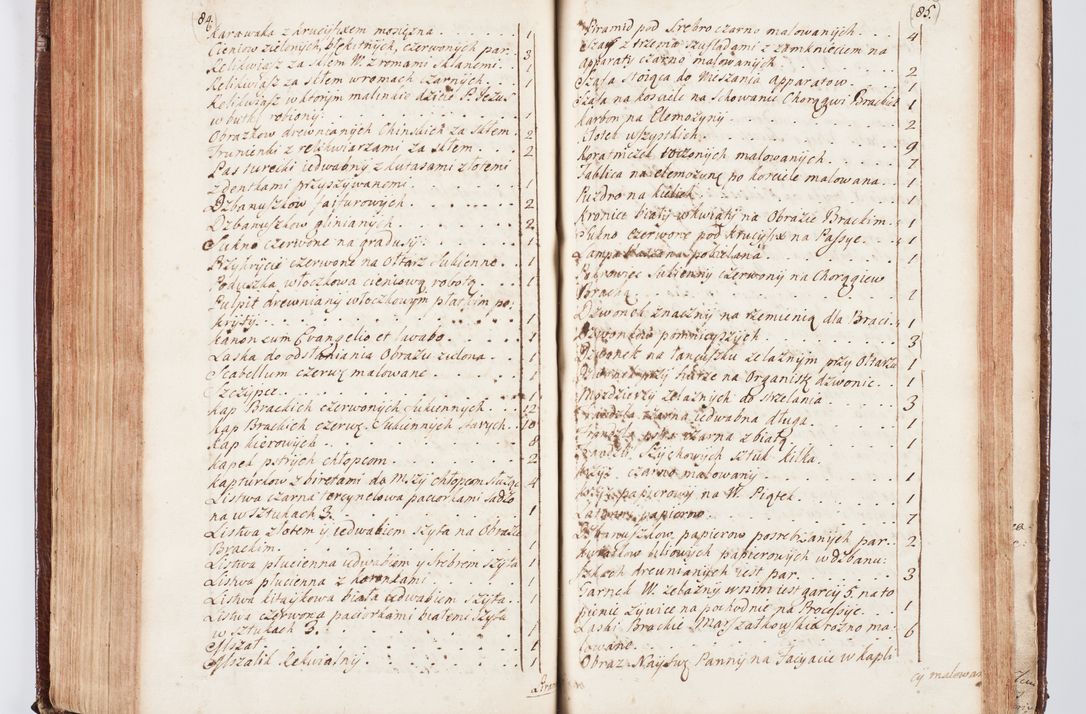 84.
Karawaka z krucyfixem mosiężna . . . 1
Cieniow zielonych, błękitnych, czerwonych par. 3
Relikwiasz za szkłem W. z romami szklanemi . 1
Relikwiasz za szkłem w romach czarnych . . 1
Relikwiasz w ktorym malinkie dziecie P. Jezus
w butli robiony . . . 1
Obrazkow drewnianych Chinskich za szkłem . 2
Trunienki z relikwiarzami za szkłem . . 2
Pas turecki iedwabny z kutasami złotemi
z dentkami przyszywanemi . . . 1
Dzbanuszkow faifurowych . . . 2
Dzbanuszkow glinianych . . . 2
Sukno czerwone na gradusy . . . 1
Przykrycie czerwone na Ołtarz Sukienne . 1
Poduszka włoczkowa cieniową robotą . . 1
Pulpit drewniany włoczkowym płaskim po
kryty . . . 1
Kanon cum Evangelio et lavabo . . . 1
Laska do odsłaniania Obrazu zielona . . 1
Scabellum czerwę malowane . . . 1
Szczypce . . . 1
Kap Brackich czerwonych Sukiennych . . 12
Kap Brackich czerwę. Sukiennych starych . 10
Kap kierowych . . . 8
Kapek pstrych chłopcom . . . 2
Kapturkow z biretami do Mszy chłopcom służą: 4
Listwa czarna tercynelowa paciorkami sadzo
na w sztukach 3. . . . 1
Listwa złotem y iedwabiem szyta na Obrazie
Brackim . . . 1
Listwa płucienna iedwabiem y srebrem szyta 1
Listwa płucienna z koronkami . . . 1
Listwa kitaykowa biała iedwabiem szyta . 1
Listwa czerwona paciorkami białemi szyta
w sztukach 3. . . . 1
Mszał . . . 1
Mszalik Rekwialny . . . 1
85.
Piramid pod srebro czarno malowanych . . 4
Szafa z trzema szufladami z zamknieciem na
apparaty czarno malowanych . . . 2
Szafa stoiąca do wieszania Apparatow . . 1
Szafa na kosciele na schowanie Chorągwi Brackiey 1
Karbon na Elemożyny . . . 2
Klotek wszystkich . . . 9
Koratniczek toczonych malowanych . . 7
Tablica na elemozynę po kosciele malowana . 1
Puzdro na kielich . . . 1
Kronice biały w kwiaty na Obrazie Brackim . 1
Sukno czerwone pod krucyfix na Passye . 1
Lampa pokielana . . . 1
Pokrowiec sukienny czerwony na Chorągiew
Bracką . . . 1
Dzwonek znaczny na rzemienią dla Braci . 1
Dzwonkow pomnieyszych . . . 3
Dzwonek na łancuszku żelaznym przy Ołtarzu 1
na Organistę dzwonic . . 1
Mozdzierzy żelaznych do strzelania . . 3
czarna iedwabna długa . . . 1
czarna z białą . . . 1
Szychowych sztuk kilka .
czarno malowany . . . 1
papierowy na W. Piątek . . . 1
papierno . . . 7
papierow posrebrzanych par . . 2
liliowych papierowych w dzbanu:
szkach drewnianych iest par . . . 3
Garnek W. żelazny w nim iest garcy 5. na to
pienie żywice na pochodnie na Processye . 1
Laski Brackie Marszałkowskie rożno ma:
lowane . . . 6
Obraz Nayśw: Panny na facyacie w kapli
cy malowan